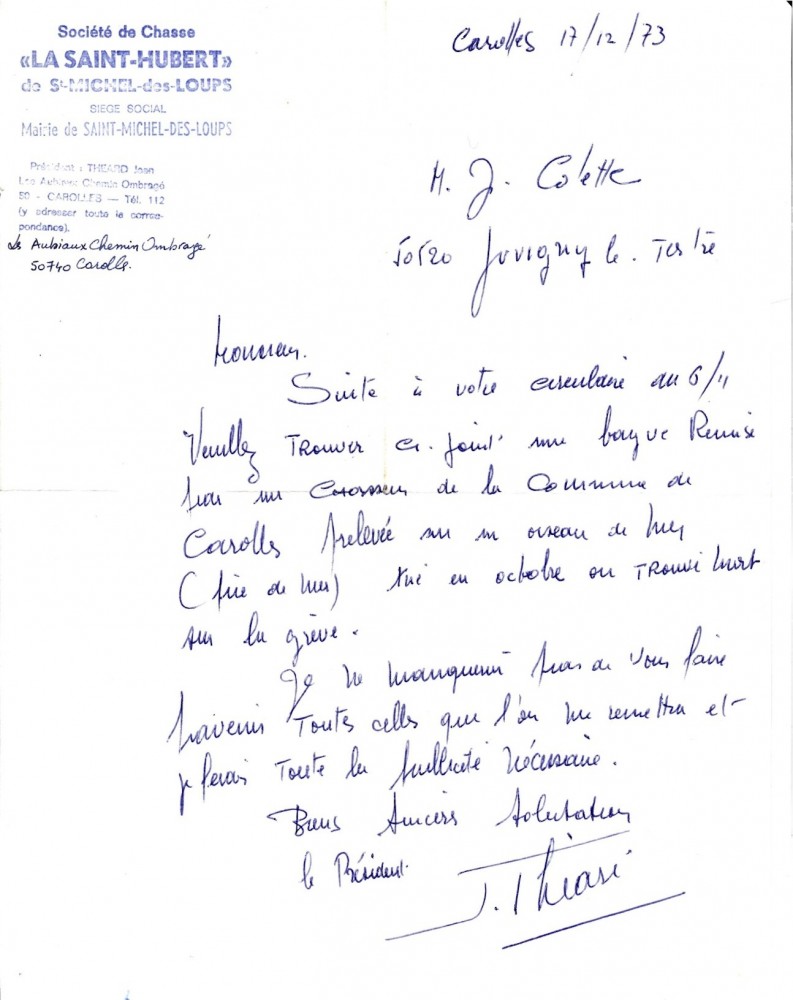 Société de Chasse
«LA SAINT-HUBERT»
de St-MICHEL-des-LOUPS
SIEGE SOCIAL
Mairie de SAINT-MICHEL-DES-LOUPS
Président : THEARD Jean
Les Aubiaux Chemin Ombragé
50 - CAROLLES — Tél. 112
(y adresser toute la corres-
pondance).
Les Aubiaux Chemin Ombragé
50740 Carolles.
Carolles 17/12/73
M. J. Colette
50520 Juvigny le. Tertre
Monsieur.
Suite à votre circulaire du 6/11
Veuillez Trouver ci-joint une bague Remise
par un chasseur de la Commune de
Carolles prelevée sur un oiseau de Mer
(pie de Mer) tué en octobre ou Trouvé Mort
sur la grève.
Je ne manquerai pas de vous faire
parvenir Toutes celles que l'on me remettra et
je ferai Toute la publicité nécessaire.
Biens Sincères Salutations
le Président.
J. Théard